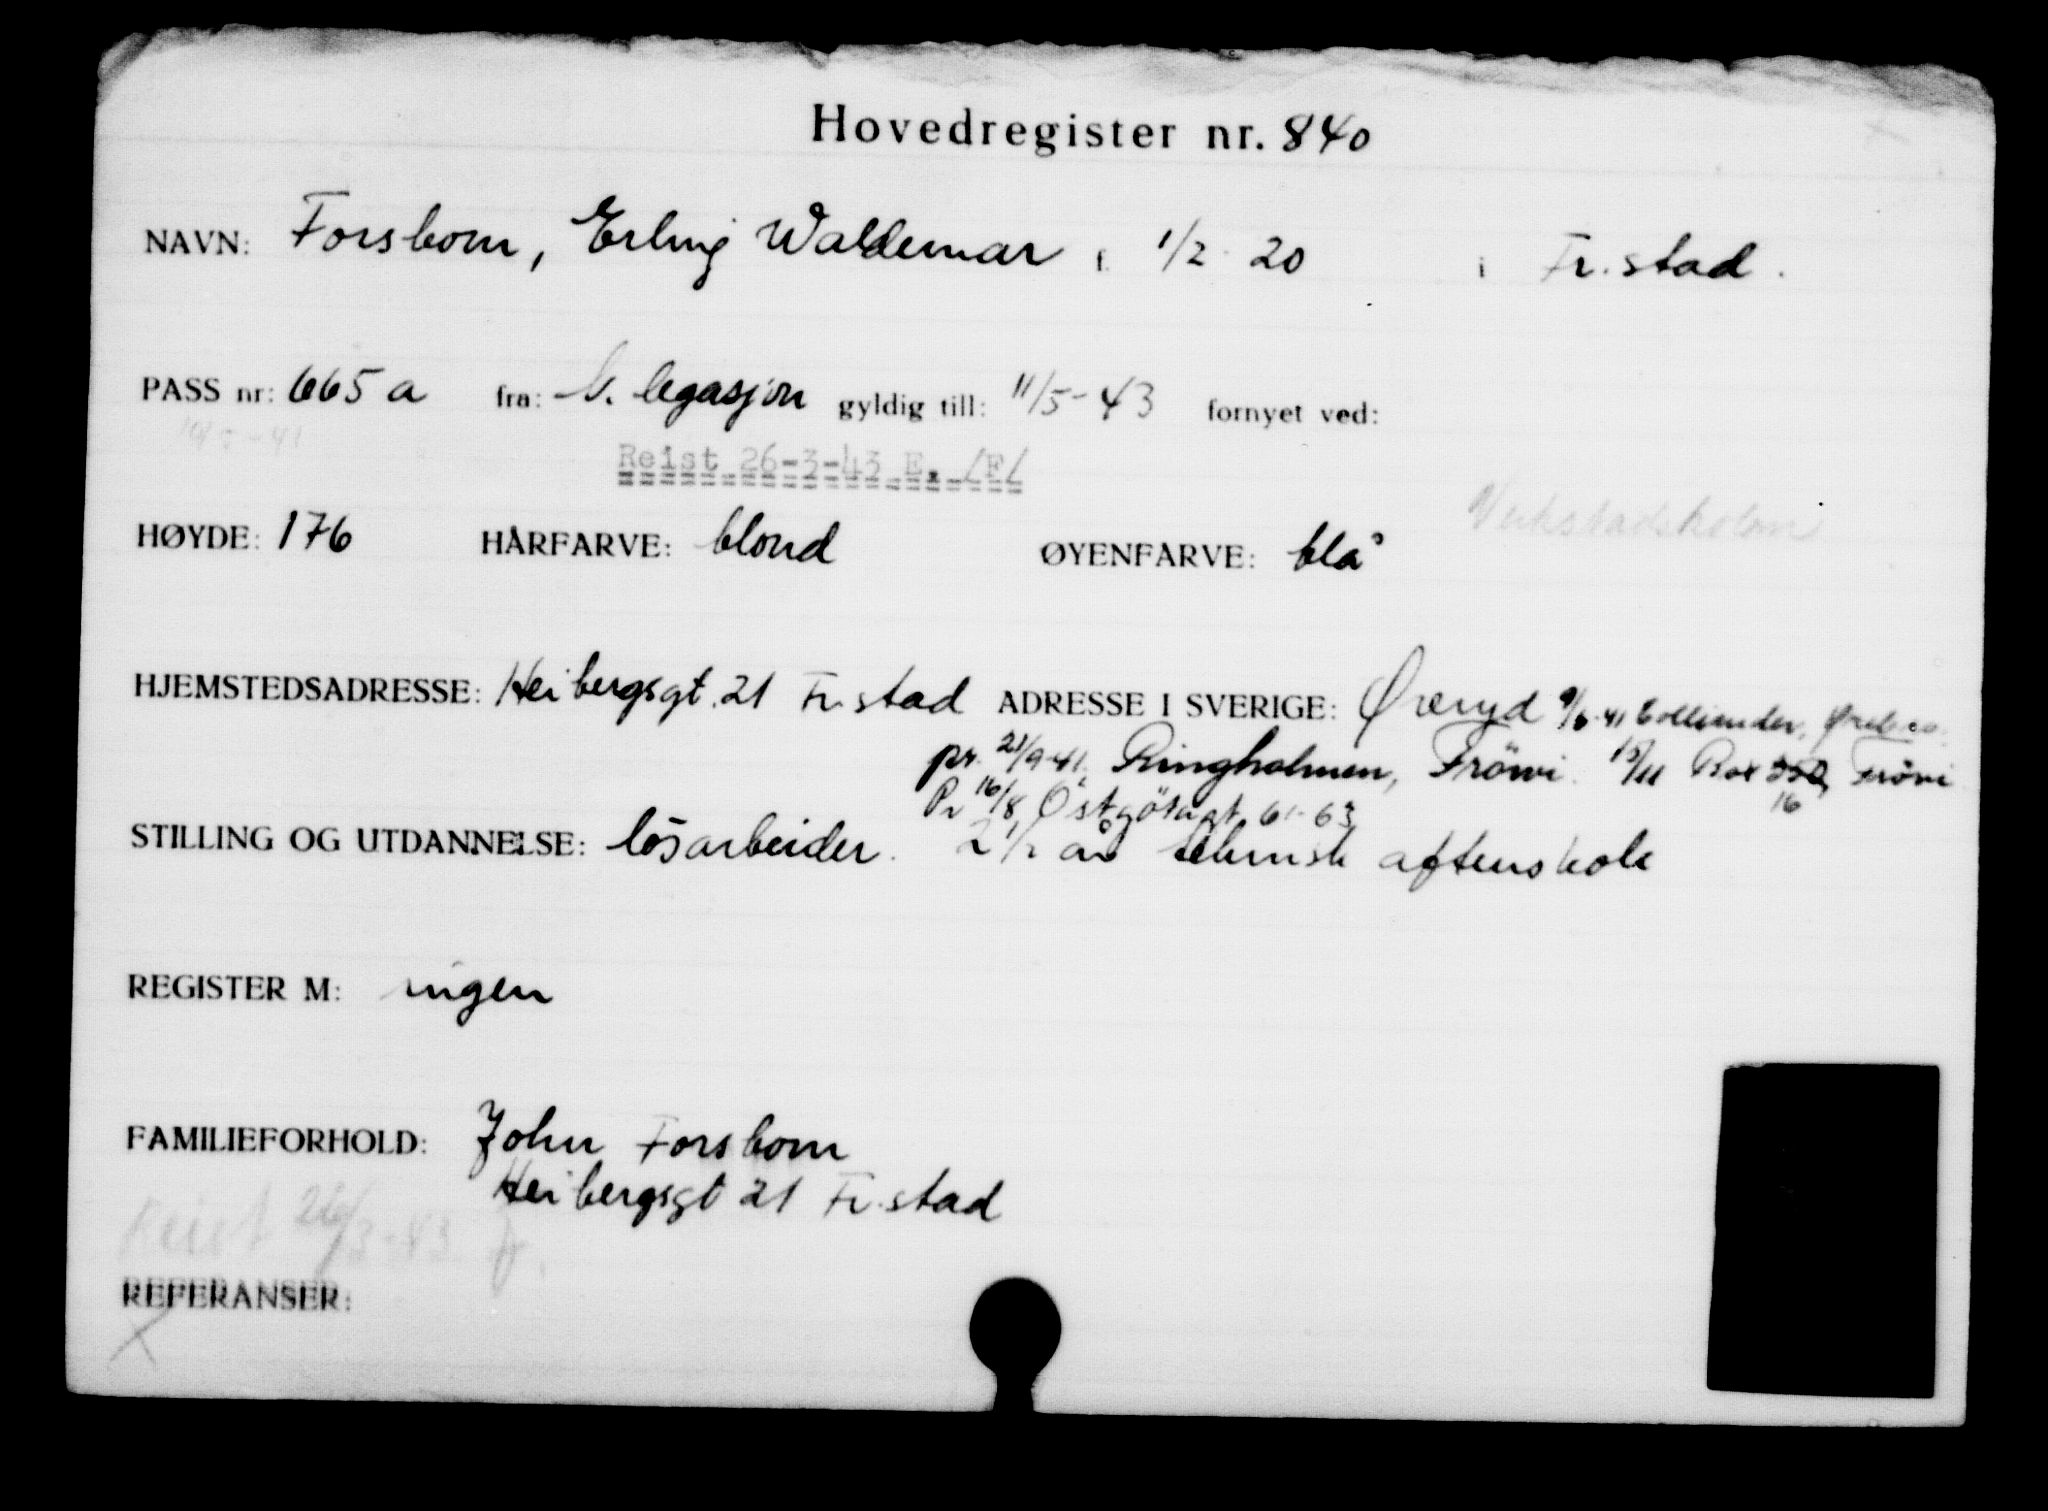 Hovedregister nr. 840
NAVN: Forsbom, Erling Waldemar f. 1/2 20 i Fr.stad.
PASS nr: 665 a fra: legasjon gyldig till: 11/5-43 fornyet ved:
Reist 26-3-43 E. /F/
Verkstadsholm
HØYDE: 176 HÅRFARVE: blond ØYENFARVE: blå
HJEMSTEDSADRESSE: Heibergsgt. 21 Fr.stad ADRESSE I SVERIGE: Øreryd 9/6-41
pr. 21/9-41. Ringholmen, Frövi. 15/11 Box 16 Frövi
Pr 16/8 Östgötagt 61-63
STILLING OG UTDANNELSE: løsarbeider. 2 1/2 år teknisk aftenskole
REGISTER M: ingen
FAMILIEFORHOLD: John Forsbom
Heibergsgt 21 Fr.stad
Reist 26/3-43
REFERANSER: